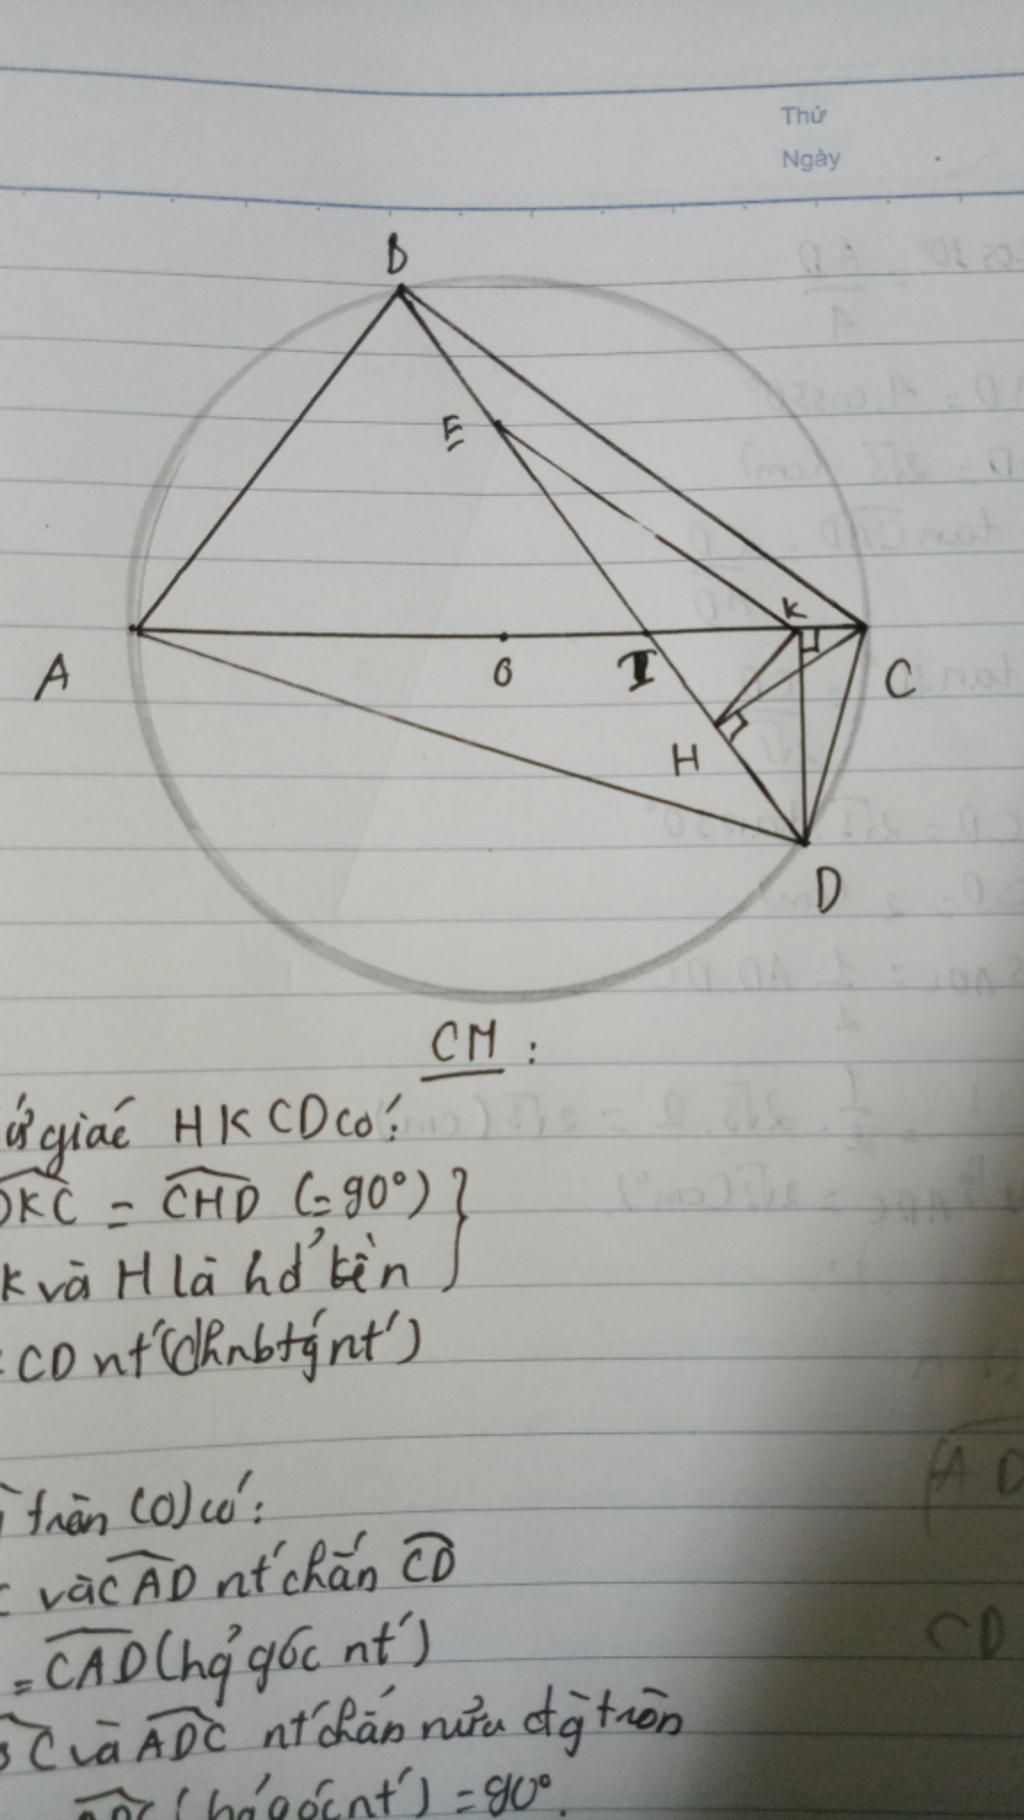 Thứ
Ngày
B
E
K
A
O
I
C
H
D
CM :
ứ giác HKCD có:
DKC = CHD (=90°)
K và H là hđ' kền
CD nt' (dhnbtgnt')
tròn (O) có:
C và CAD nt' chắn CD
= CAD (hq' góc nt')
BC và ADC nt' chắn nửa đg tròn
ADC (hq' góc nt') = 90°.